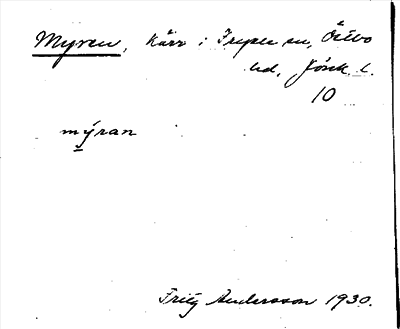 Myren, Kärr i Ingaryd sn, Östbo
hd, Jönk. l.
10
mýran
Fritz Andersson 1930.